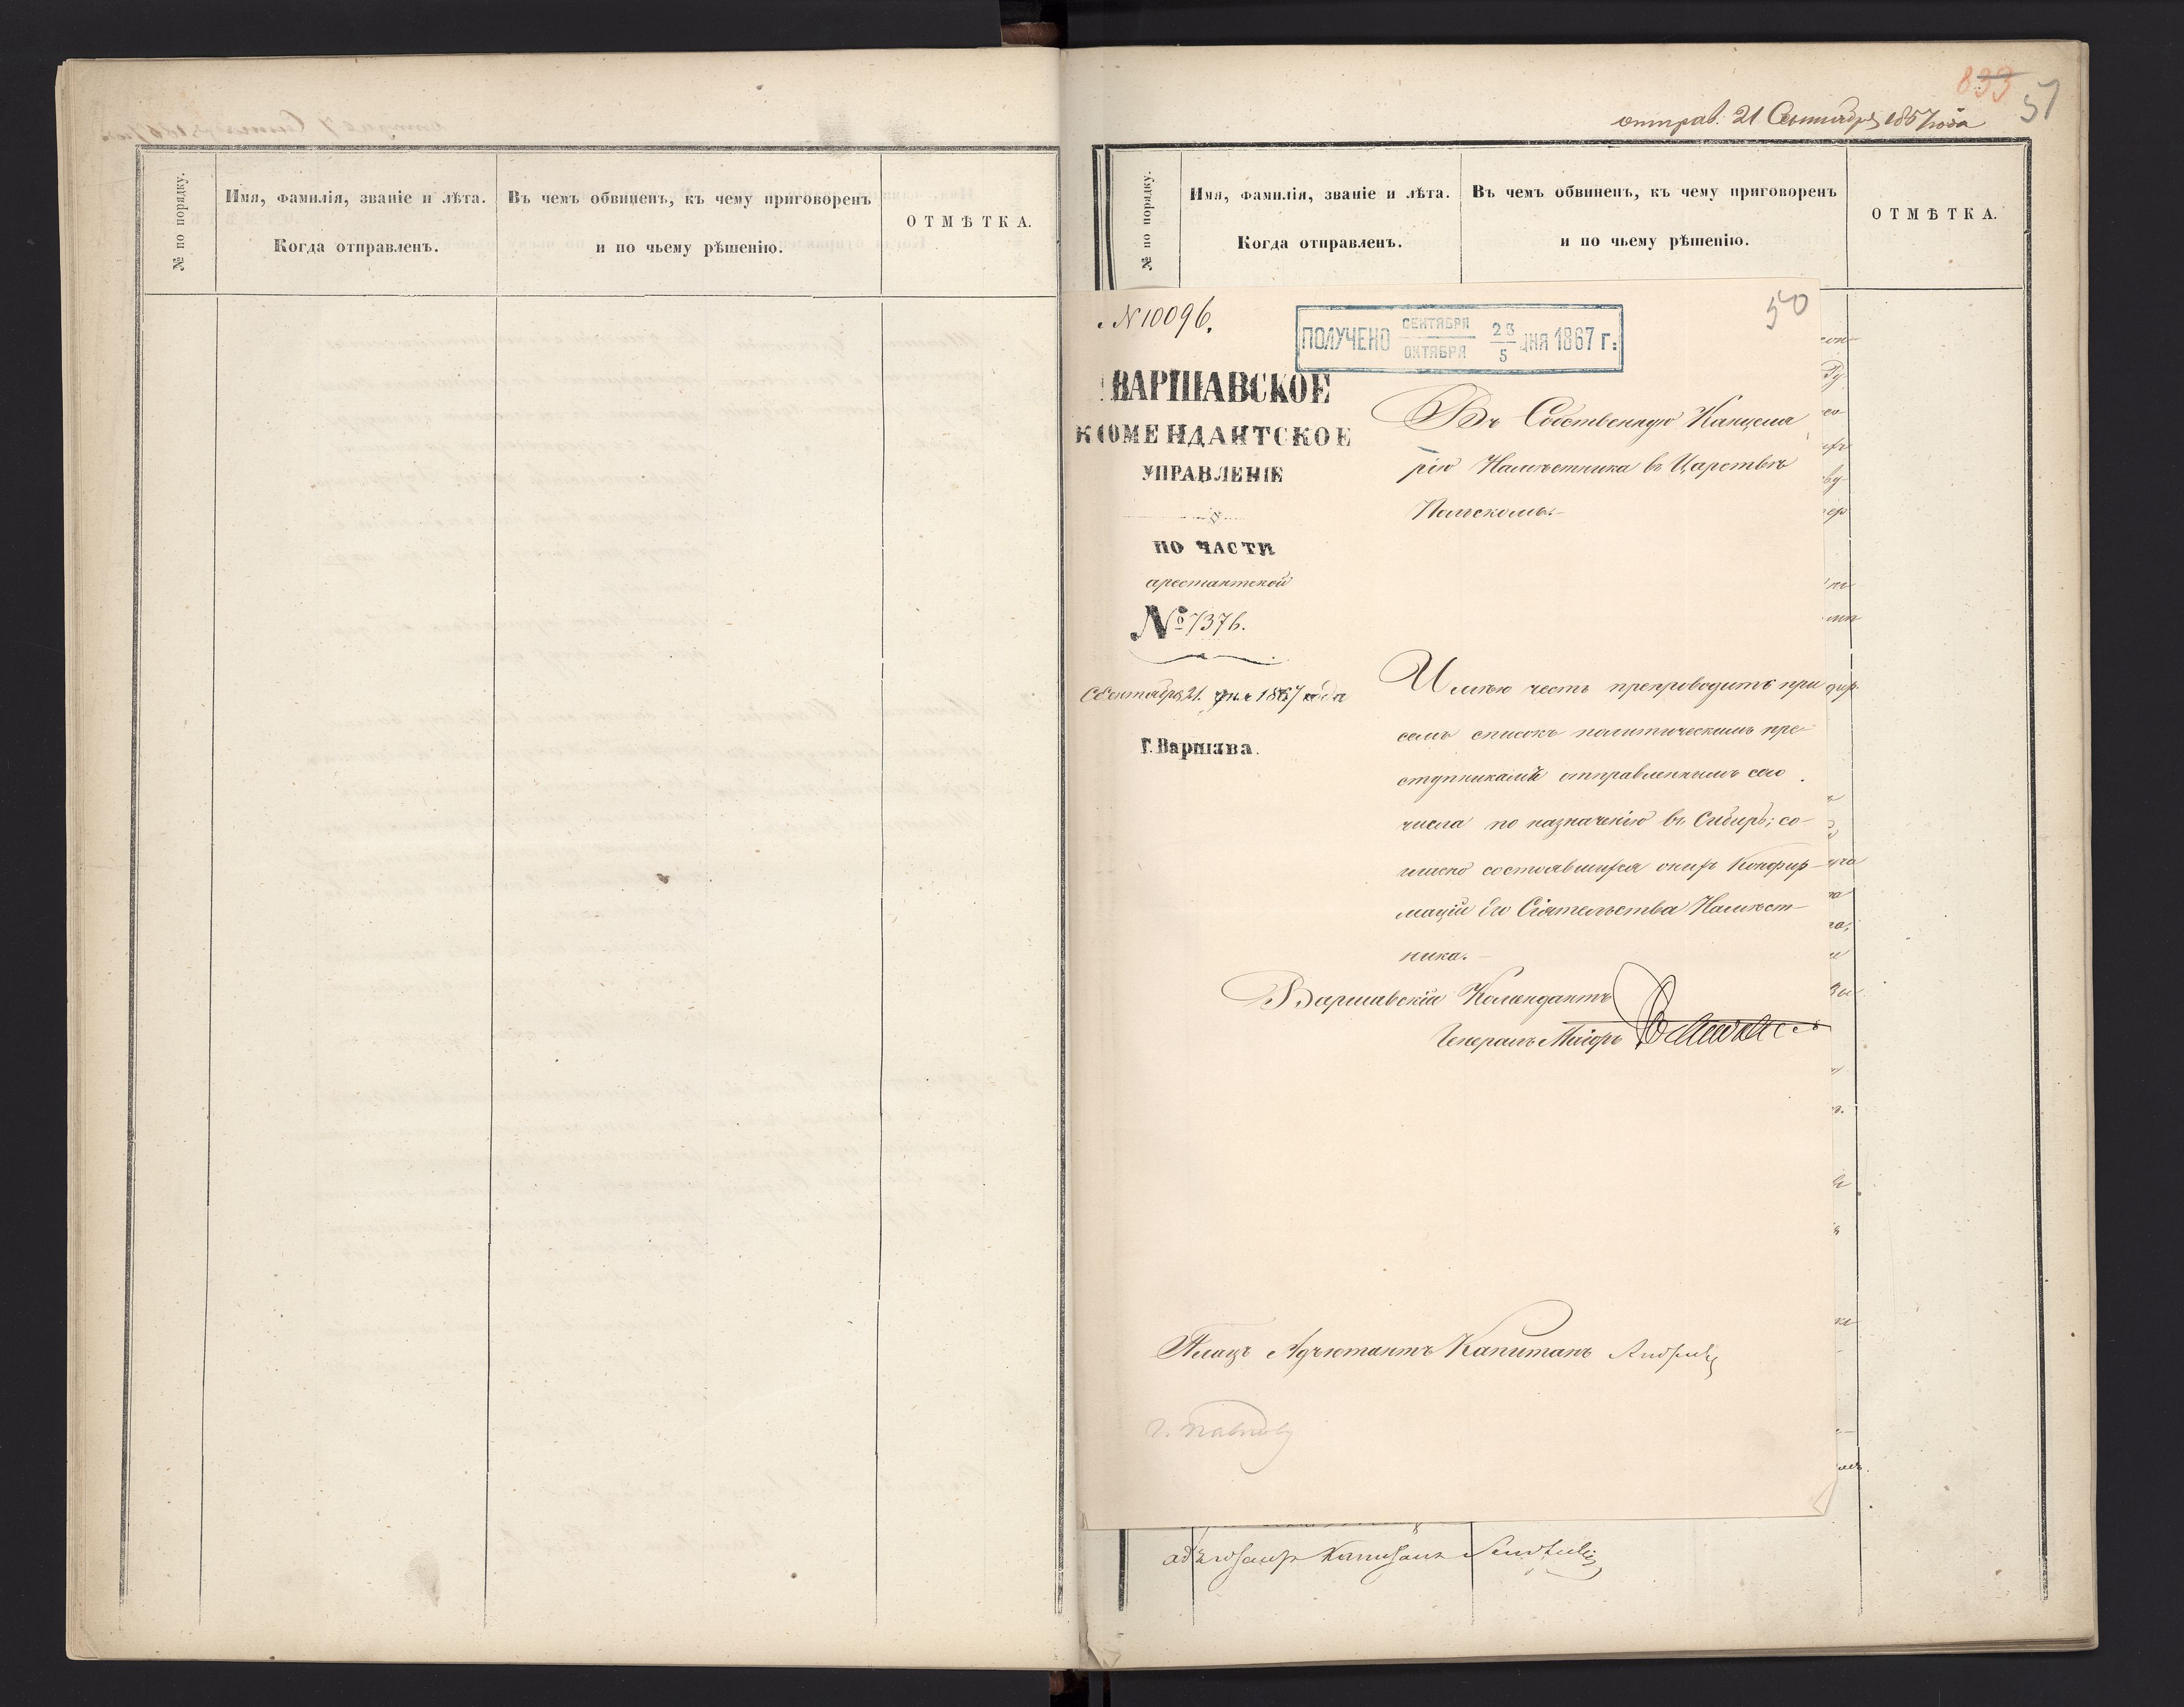 № по порядку.
Имя, фамилія, званіе и лѣта.
Когда отправленъ.
Въ чемъ обвиненъ, къ чему приговоренъ
и по чьему рѣшенію.
ОТМѢТКА.
833
51
отправ. 21 Сентября 1867 года
№ по порядку.
Имя, фамилія, званіе и лѣта.
Когда отправленъ.
Въ чемъ обвиненъ, къ чему приговоренъ
и по чьему рѣшенію.
ОТМѢТКА.
50
№ 10096.
ПОЛУЧЕНО СЕНТЯБРЯ 23 ОКТЯБРЯ 5 ДНЯ 1867 Г.
ВАРШАВСКОЕ
КОМЕНДАНТСКОЕ
УПРАВЛЕНІЕ
ПО ЧАСТИ
арестантской
№ 7376.
Сентября 21 дня 1867 года
Г. Варшава.
Въ Собственную Канцеля
рію Намѣстника въ Царствѣ
Польскомъ.
Имѣю честь препроводить при
семъ списокъ политическимъ пре-
ступникамъ отправленнымъ сего
числа по назначенію въ Сибирь; со-
гласно состоявшихся о нихъ Конфир-
маціи Его Сіятельства Намѣст-
ника.
Варшавскій Комендантъ
Генералъ Маіоръ
Плацъ Адъютантъ Капитанъ
адъютантъ Капитанъ